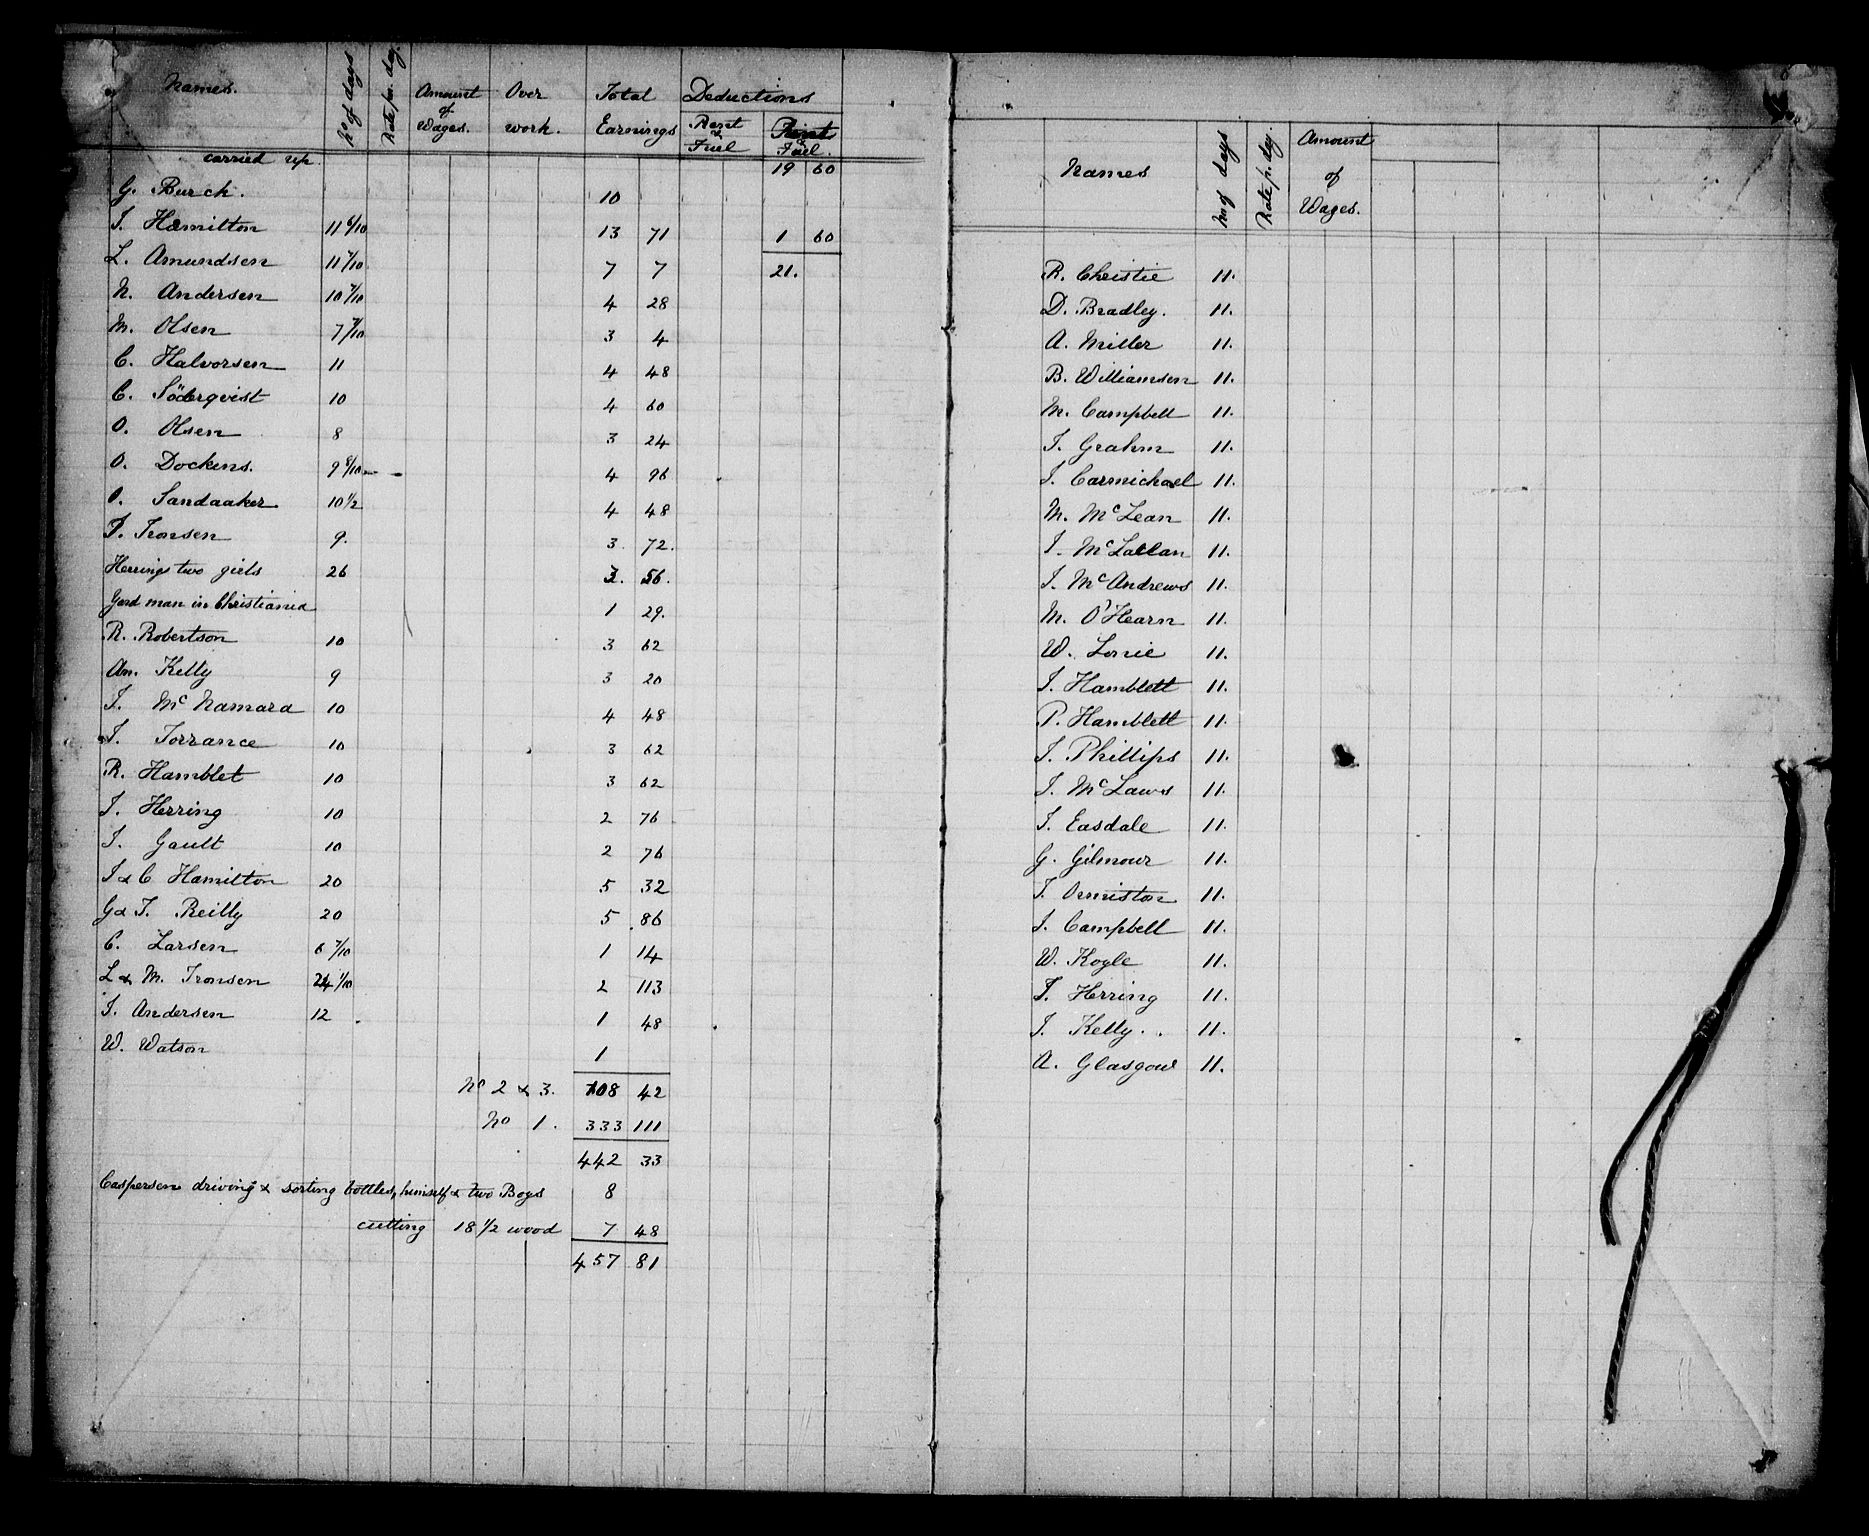 Names. No of days Rate pr. day. Amount of Wages. Over work. Total Earnings Deductions Rent & Fuel Rent & Fuel.
carried up. 19 60
G. Burck. 10
J. Hamilton 11 6/10 13 71 1 60
L. Amundsen 11 7/10 7 7 21.
N. Andersen 10 7/10 4 28
M. Olsen 7 7/10 3 4
C. Halvorsen 11 4 48
C. Söderqvist 10 4 60
O. Olsen 8 3 24
O. Dockens. 9 8/10 4 96
O. Sandaaker 10 1/2 4 48
P. Tronsen 9. 3. 72.
Herrings two girls 26 3. 56.
Yard man in Christiania 1 29.
R. Robertson 10 3 62
An. Kelly 9 3 20
J. McNamara 10 4 48
J. Torrance 10 3 62
R. Hamblet 10 3 62
J. Herring 10 2 76
J. Gault 10 2 76
J & C Hamilton 20 5 32
G & J. Reilly 20 5 86
C. Larsen 6 7/10 1 14
L & M. Tronsen 24 1/10 2 113
J. Andersen 12 1 48
W. Watson 1
No 2 & 3. 108 42
No 1. 333 111
442 33
Caspersen driving & sorting bottles, himself & two Boys 8
cutting 18 1/2 wood 7 48
457 81
Names No of days Rate p. day. Amount of Wages.
R. Christie 11.
D. Bradley. 11.
A. Miller 11.
B. Williamsen 11.
M. Campbell 11.
J. Grahm 11.
J. Carmichael 11.
M. McLean 11.
J. McLallan 11.
J. McAndrews 11.
M. O'Hearn 11.
W. Lonie 11.
J. Hamblett 11.
P. Hamblett 11.
J. Phillips 11.
J. McLaws 11.
J. Easdale 11.
G. Gilmour 11.
J. Ormiston 11.
J. Campbell 11.
W. Kogle 11.
J. Herring 11.
J. Kelly. 11.
A. Glasgow 11.